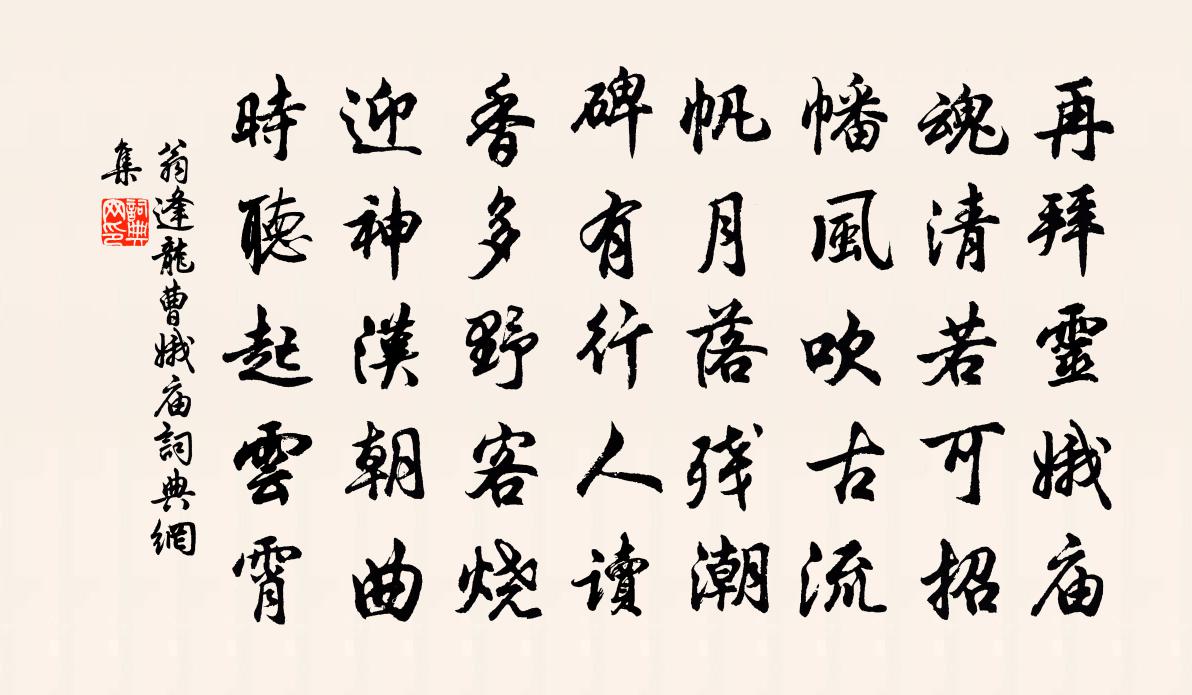 再拜靈娥庙
魂清若可招
幡風吹古流
帆月落残潮
碑有行人讀
香多野客烧
迎神漢朝曲
時聽起雲霄
翁逢龍曹娥庙詞典網
集
詞典
网印